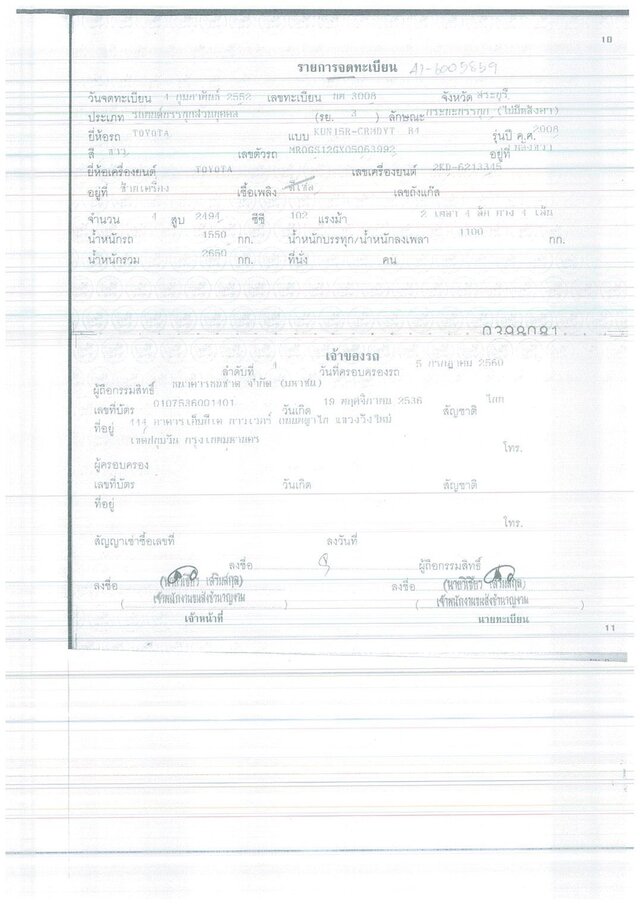 10
รายการจดทะเบียน A1-6005859
วันจดทะเบียน 4 กุมภาพันธ์ 2552 เลขทะเบียน บต 3008 จังหวัด สระบุรี
ประเภท รถยนต์บรรทุกส่วนบุคคล (รย. 3 ) ลักษณะ กระบะบรรทุก (ไม่มีหลังคา)
ยี่ห้อรถ TOYOTA แบบ KUN15R-CRMDYT รุ่นปี ค.ศ. 2008
สี ขาว เลขตัวรถ MR0GS12GX05063992 อยู่ที่
ยี่ห้อเครื่องยนต์ TOYOTA เลขเครื่องยนต์ 2KD-6213345
อยู่ที่ ซ้ายเครื่อง เชื้อเพลิง ดีเซล เลขถังแก๊ส
จำนวน 4 สูบ 2494 ซีซี 102 แรงม้า 2 เพลา 4 ล้อ ยาง 4 เส้น
น้ำหนักรถ 1550 กก. น้ำหนักบรรทุก/น้ำหนักลงเพลา 1100 กก.
น้ำหนักรวม 2650 กก. ที่นั่ง คน
0398081
เจ้าของรถ
ลำดับที่ 1 วันที่ครอบครองรถ 5 กรกฎาคม 2560
ผู้ถือกรรมสิทธิ์ ธนาคารธนชาต จำกัด (มหาชน)
เลขที่บัตร 0107536001401 วันเกิด 19 พฤศจิกายน 2536 สัญชาติ ไทย
ที่อยู่ 444 อาคารเอ็มบีเค ทาวเวอร์ ถนนพญาไท แขวงวังใหม่
เขตปทุมวัน กรุงเทพมหานคร
โทร.
ผู้ครอบครอง
เลขที่บัตร วันเกิด สัญชาติ
ที่อยู่
โทร.
สัญญาเช่าซื้อเลขที่ ลงวันที่
ลงชื่อ ผู้ถือกรรมสิทธิ์
ลงชื่อ (นายวิเชียร เสริมสกุล) ลงชื่อ (นายวิเชียร เสริมสกุล)
( เจ้าพนักงานขนส่งชำนาญงาน ) ( เจ้าพนักงานขนส่งชำนาญงาน )
เจ้าหน้าที่ นายทะเบียน
11